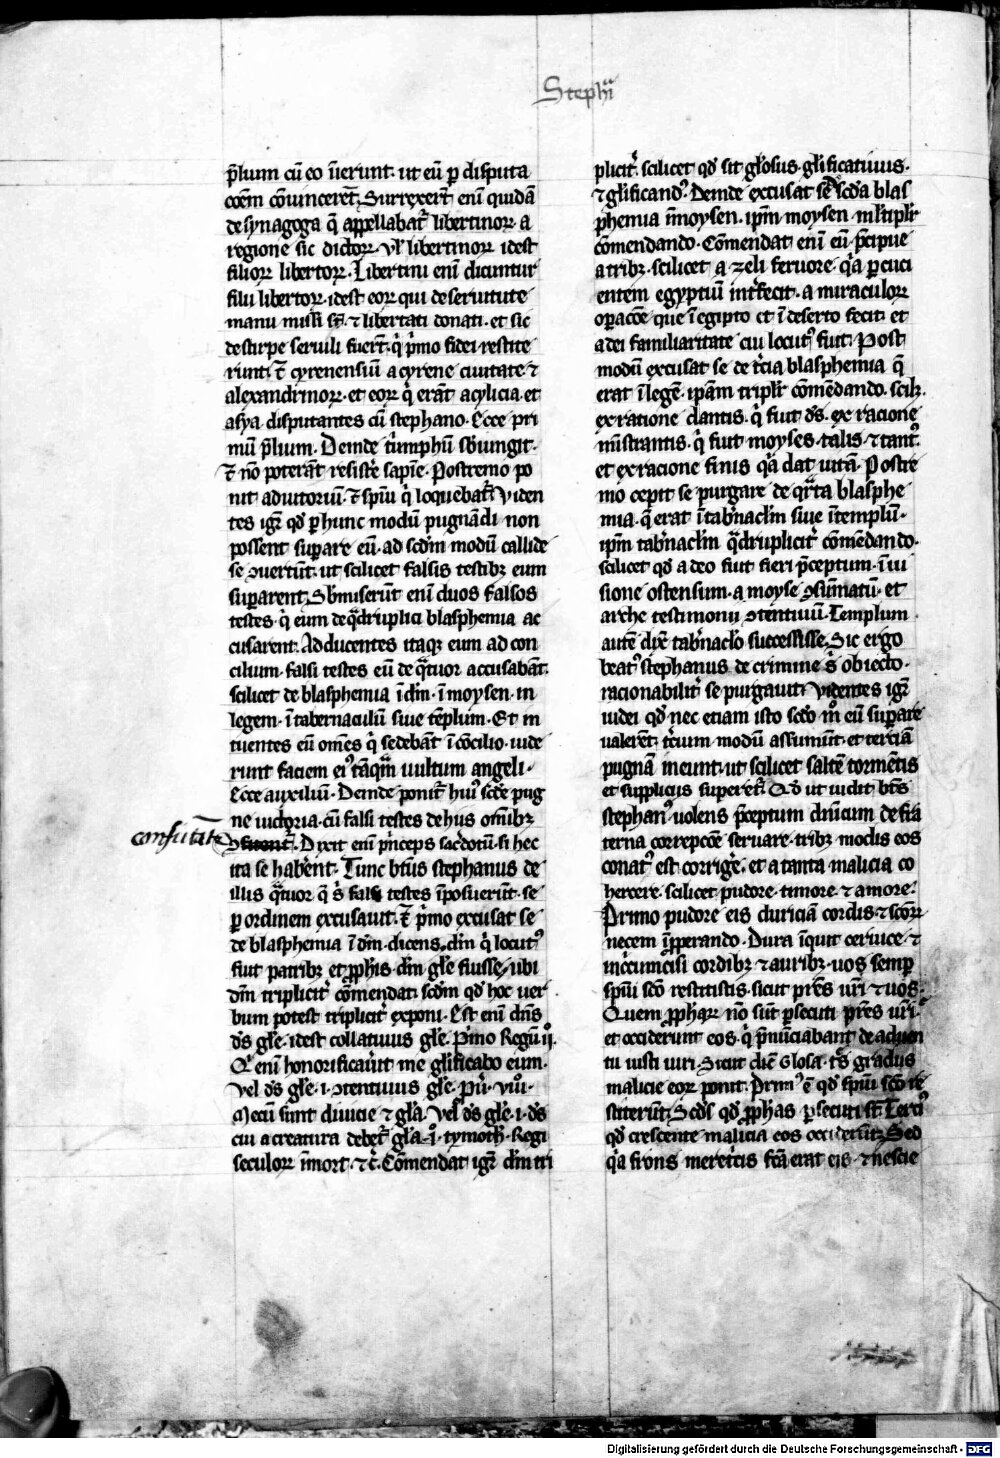 Stephī
p̄lium cū eo īierunt· ut eū p disputa
cōem cōuincerēt· Surrexerūt enī quidā
de synagoga q̄ appellabat᷑ libertinoꝝ· a
regione sic dictoꝝ· ul̄ libertinoꝝ idest
filioꝝ libertoꝝ· Libertini enī dicuntur
filii libertoꝝ· idest eoꝝ qui de seruitute
manu missi sūt· ⁊ libertati donati· et sic
de stirpe seruili fuerūt· q̇ p̄mo fidei restite
runt· ⁊ cyrenensiū a cyrene ciuitate ⁊
alexandrinoꝝ· et eoꝝ q̇ erāt a cylicia et
asya disputantes cū stephano· Ecce pri
mū p̄lium· Deinde t̄umphū sbiungit·
⁊ nō poterāt resistere sapīe· Postremo po
nit adiutoriū· ⁊ spūi q̇ loquebat᷑· Viden
tes igr̄ qd̄ p hunc modū pugnādi non
possent supare eū· ad scdm modū callide
se ꝯuertūt· ut scilicet falsis testibꝫ eum
suparent· Sbmiserūt enī duos falsos
testes· q̇ eum de q̄druplici blasphemia ac
cusarent· Adducentes itaqꝫ eum ad con
cilium· falsi testes eū de q̄tuor accusabāt·
scilicet de blasphemia ī dm̄· ī moysen· in
legem· ī tabernaculū siue tēplum· Et in
tuentes eū om̄es q̇ sedebāt ī cōcilio· uide
runt faciem ei᷒ tāq̄m uultum angeli·
Ecce auxiliū· Deinde ponit᷑ hui᷒ scde pug
ne uictoria· cū falsi testes de hiis om̄ibꝫ
confutant᷑
ꝯfutant᷑· Dixit enī p̄nceps sacdotū· si hec
ita se haberent· Tunc bt̄us stephanus de
illis q̄tuor q̄ s̄ falsi testes īposuerūt· se
p ordinem excusauit· ⁊ p̄mo excusat se
de blasphemia ī dm̄· dicens· dm̄ q̇ locut᷒
fuit patribꝫ et ꝓphis· dm̄ gl̄e fuisse· ubi
dm̄ triplicit᷑ cōmendat· scdm qd̄ hoc uer
bum potest triplicit᷑ exponi· Est enī dn̄s
ds̄ gl̄e· idest collatiuus gl̄e· P̄mo Regū ij·
Q̇ enī honorificauit me glificabo eum·
Vel ds̄ gl̄e· i· ꝯtentiuus gl̄e· pu᷑· viij·
Mecū sunt diuicie ⁊ gl̄a· Vel ds̄ gl̄e· i· ds̄
cui a creatura debet᷑ gl̄a· i· tymoth· Regi
seculoꝝ īmort· ⁊c̄· Cōmendat igr̄ dm̄ tri
plicit᷑· scilicet qd̄ sit gl̄osus· glificatiuus·
⁊ glificand᷒· Deinde excusat se de scd̄a blas
phemia ī moysen· ipm̄ moysen ml̄tiplr̄
cōmendando· Cōmendat enī eū p̄cipue
a tribꝫ· scilicet a zeli feruore· q̇a pcuci
entem egyptiū int̄fecit· a miraculoꝝ
opacōe que ī egipto et ī deserto fecit· et
a dei familiaritate cui locut᷒ fuit· Post
modū excusat se de t̄cia blasphemia q̄
erat ī legē· ipām triplr̄ cōmēdando· scilꝫ·
ex ratione dantis· q̇ fuit ds̄· ex racione
mīstrantis· q̇ fuit moyses· talis ⁊ tant᷒·
et ex racione finis q̇a dat uitā· Postre
mo cepit se purgare de q̄rta blasphe
mia· q̄ erat ī tab̄naclm̄ siue ī templū·
ipm̄ tab̄naclm̄ q̄druplicit᷑ cōmēdando·
scilicet qd̄ a deo fuit fieri p̄ceptum· ī ui
sione ostensum· a moyse ꝯsūmatū· et
arche testimonii ꝯtentiuū· Templum
autē dix̄ tab̄naclo successisse· Sic ergo
beat᷒ stephanus de crimine s̄ obiecto·
racionabilit᷑ se purgauit· Videntes igr̄
iudei qd̄ nec etiam isto scdo mo eū supare
ualerēt· t̄cium modū assumūt· et terciā
pugnā ineunt· ut scilicet saltē tormētis
et suppliciis superet᷑· Qd̄ ut uidit bt̄us
stephan᷒· uolens p̄ceptum dn̄icum de fra
terna correpcōe seruare· tribꝫ modis eos
conat᷒ est corrigē· et a tanta malicia co
hercere· scilicet pudore· timore ⁊ amore·
Primo pudore eis duriciā cordis ⁊ scōꝝ
necem īpperando· Dura īquit ceruice· ⁊
īcircumcisi cordibꝫ ⁊ auribꝫ· uos semp
spūi scō restitistis· sicut pr̄es ur̄i ⁊ uos·
Quem ꝓphaꝝ nō sūt psecuti pr̄es ur̄i·
et occiderunt eos· q̇ p̄nūciabant de aduen
tu iusti uiri· Sicut dic̄ Glosa· t̄s gradus
malicie eoꝝ ponit· Prim᷒ ē qd̄ spūi scō re
stiterūt· Scds̄ qd̄ ꝓphas psecuti sūt· Terci᷒
qd̄ crescente malicia eos occiderūt· Sed
q̇a frons meretricis fc̄a erat eis ⁊ nescie
Digitalisierung gefördert durch die Deutsche Forschungsgemeinschaft - DFG